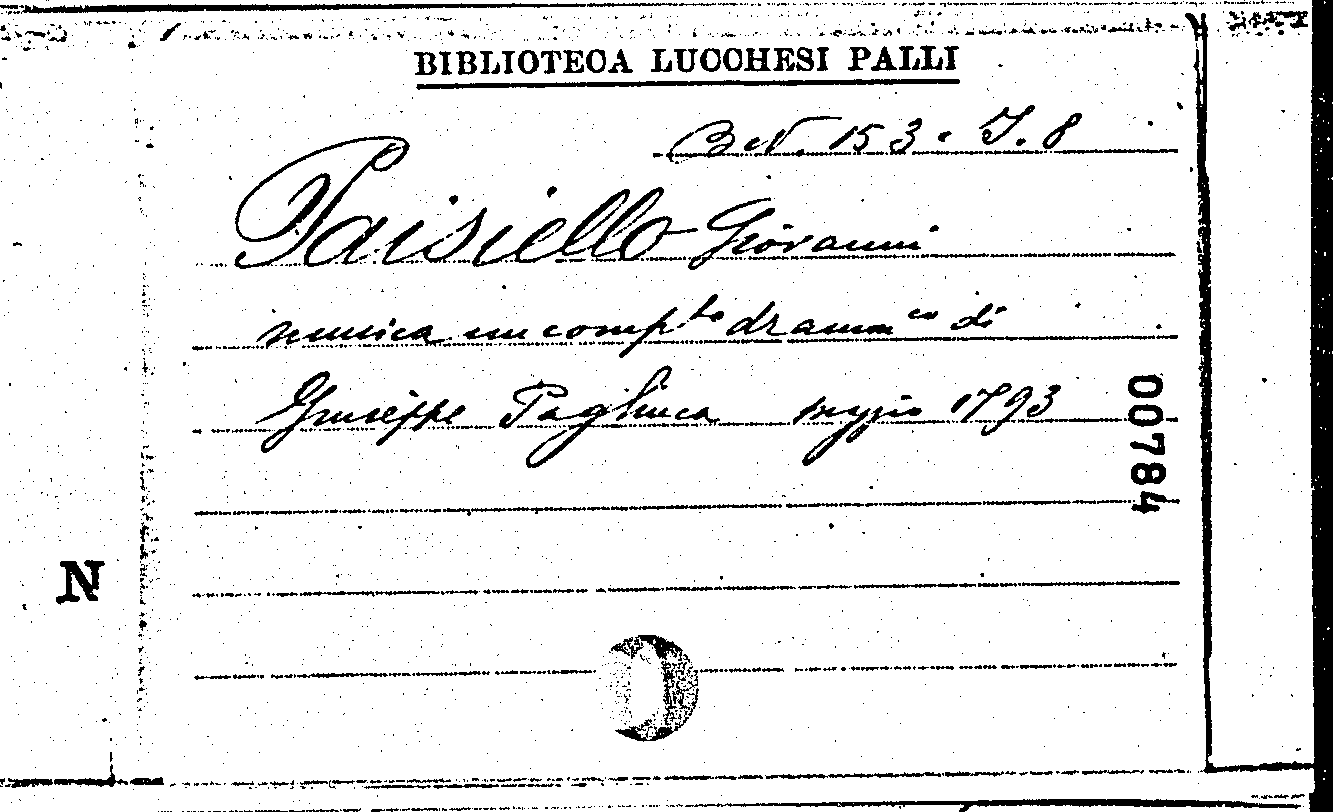 BIBLIOTECA LUCCHESI PALLI
Bett. 153. I. 8
Paisiello Giovanni
musica un comp.to dramm.co di
Giuseppe Pagliuca maggio 1793
00784
N